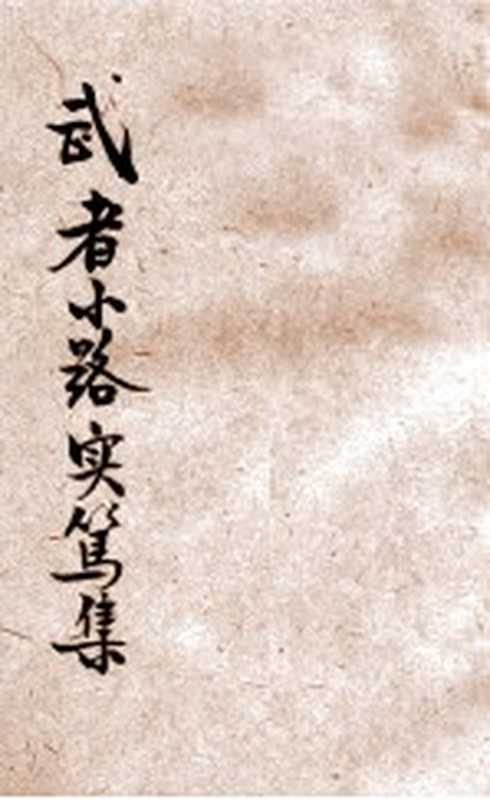 武者小路实篤集